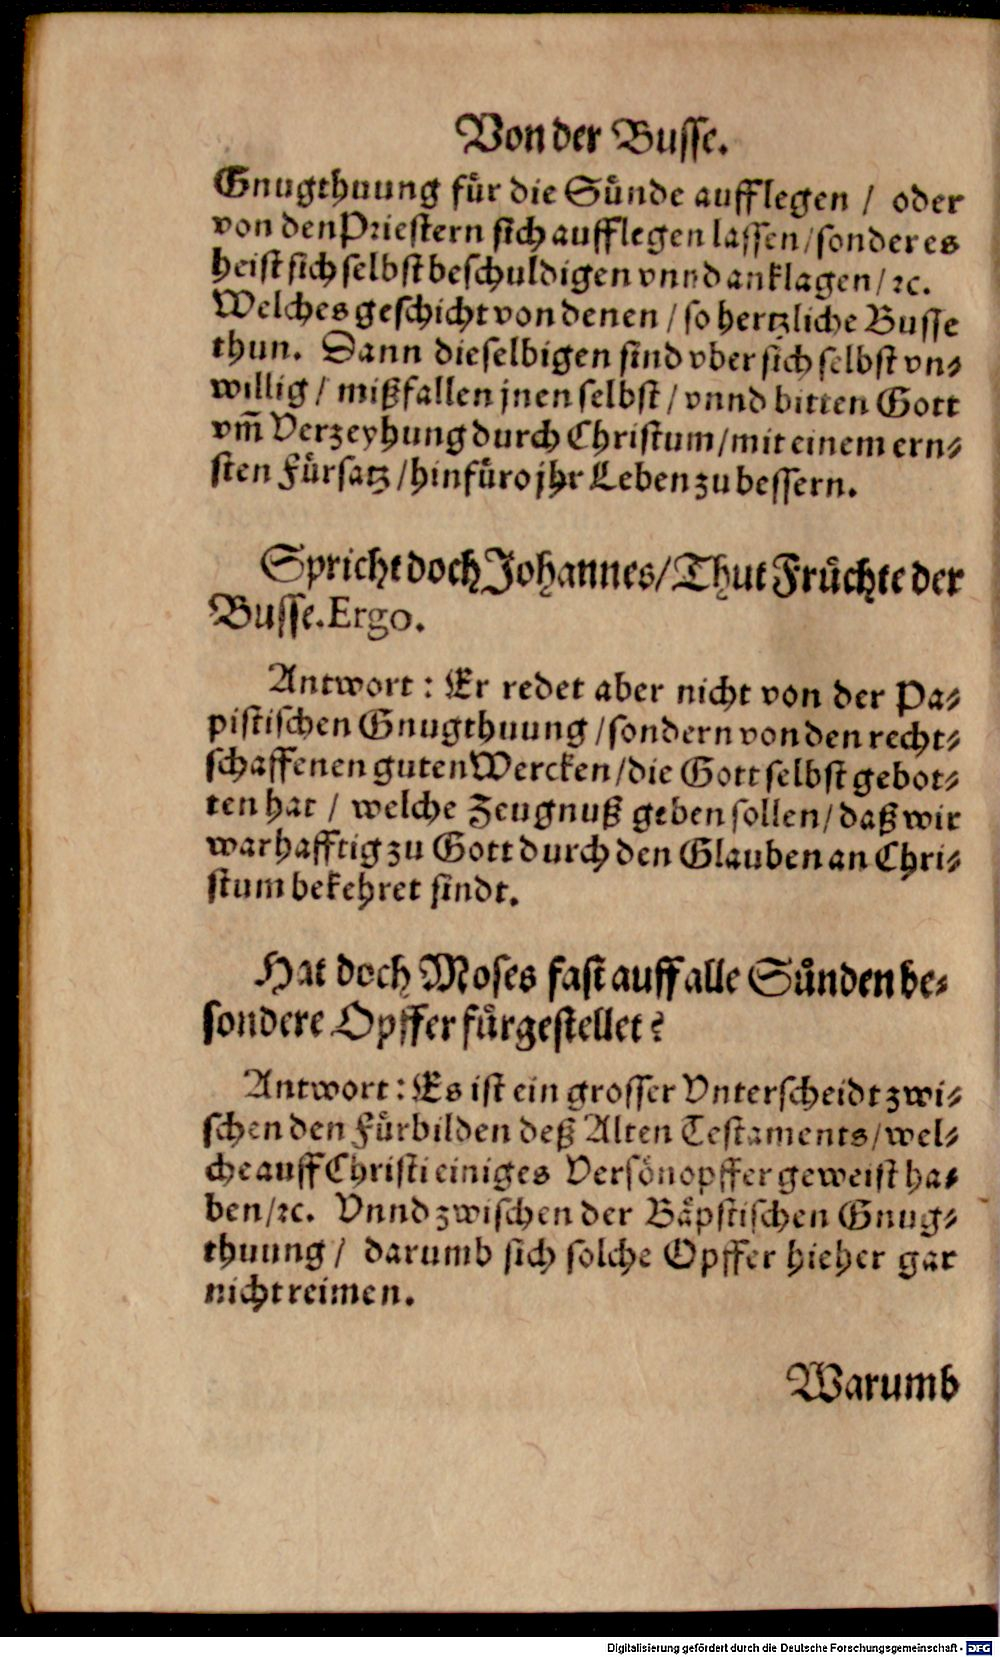 Von der Busse.
Gnugthuung für die Sünde aufflegen / oder
von den Priestern sich aufflegen lassen / sonder es
heist sich selbst beschuldigen vnnd anklagen / ꝛc.
Welches geschicht von denen / so hertzliche Busse
thun. Dann dieselbigen sind vber sich selbst vn⸗
willig / mißfallen jnen selbst / vnnd bitten Gott
vm̃ Verzeyhung durch Christum / mit einem ern⸗
sten Fürsatz / hinfüro jhr Leben zu bessern.
Spricht doch Johannes / Thut Früchte der
Busse. Ergo.
Antwort : Er redet aber nicht von der Pa⸗
pistischen Gnugthuung / sondern von den recht⸗
schaffenen guten Wercken / die Gott selbst gebot⸗
ten hat / welche Zeugnuß geben sollen / daß wir
warhafftig zu Gott durch den Glauben an Chri⸗
stum bekehret sindt.
Hat doch Moses fast auff alle Sünden be⸗
sondere Opffer fürgestellet?
Antwort : Es ist ein grosser Vnterscheidt zwi⸗
schen den Fürbilden deß Alten Testaments / wel⸗
che auff Christi einiges Versönopffer geweist ha⸗
ben / ꝛc. Vnnd zwischen der Bäpstischen Gnug⸗
thuung / darumb sich solche Opffer hieher gar
nicht reimen.
Warumb
Digitalisierung gefördert durch die Deutsche Forschungsgemeinschaft - DFG